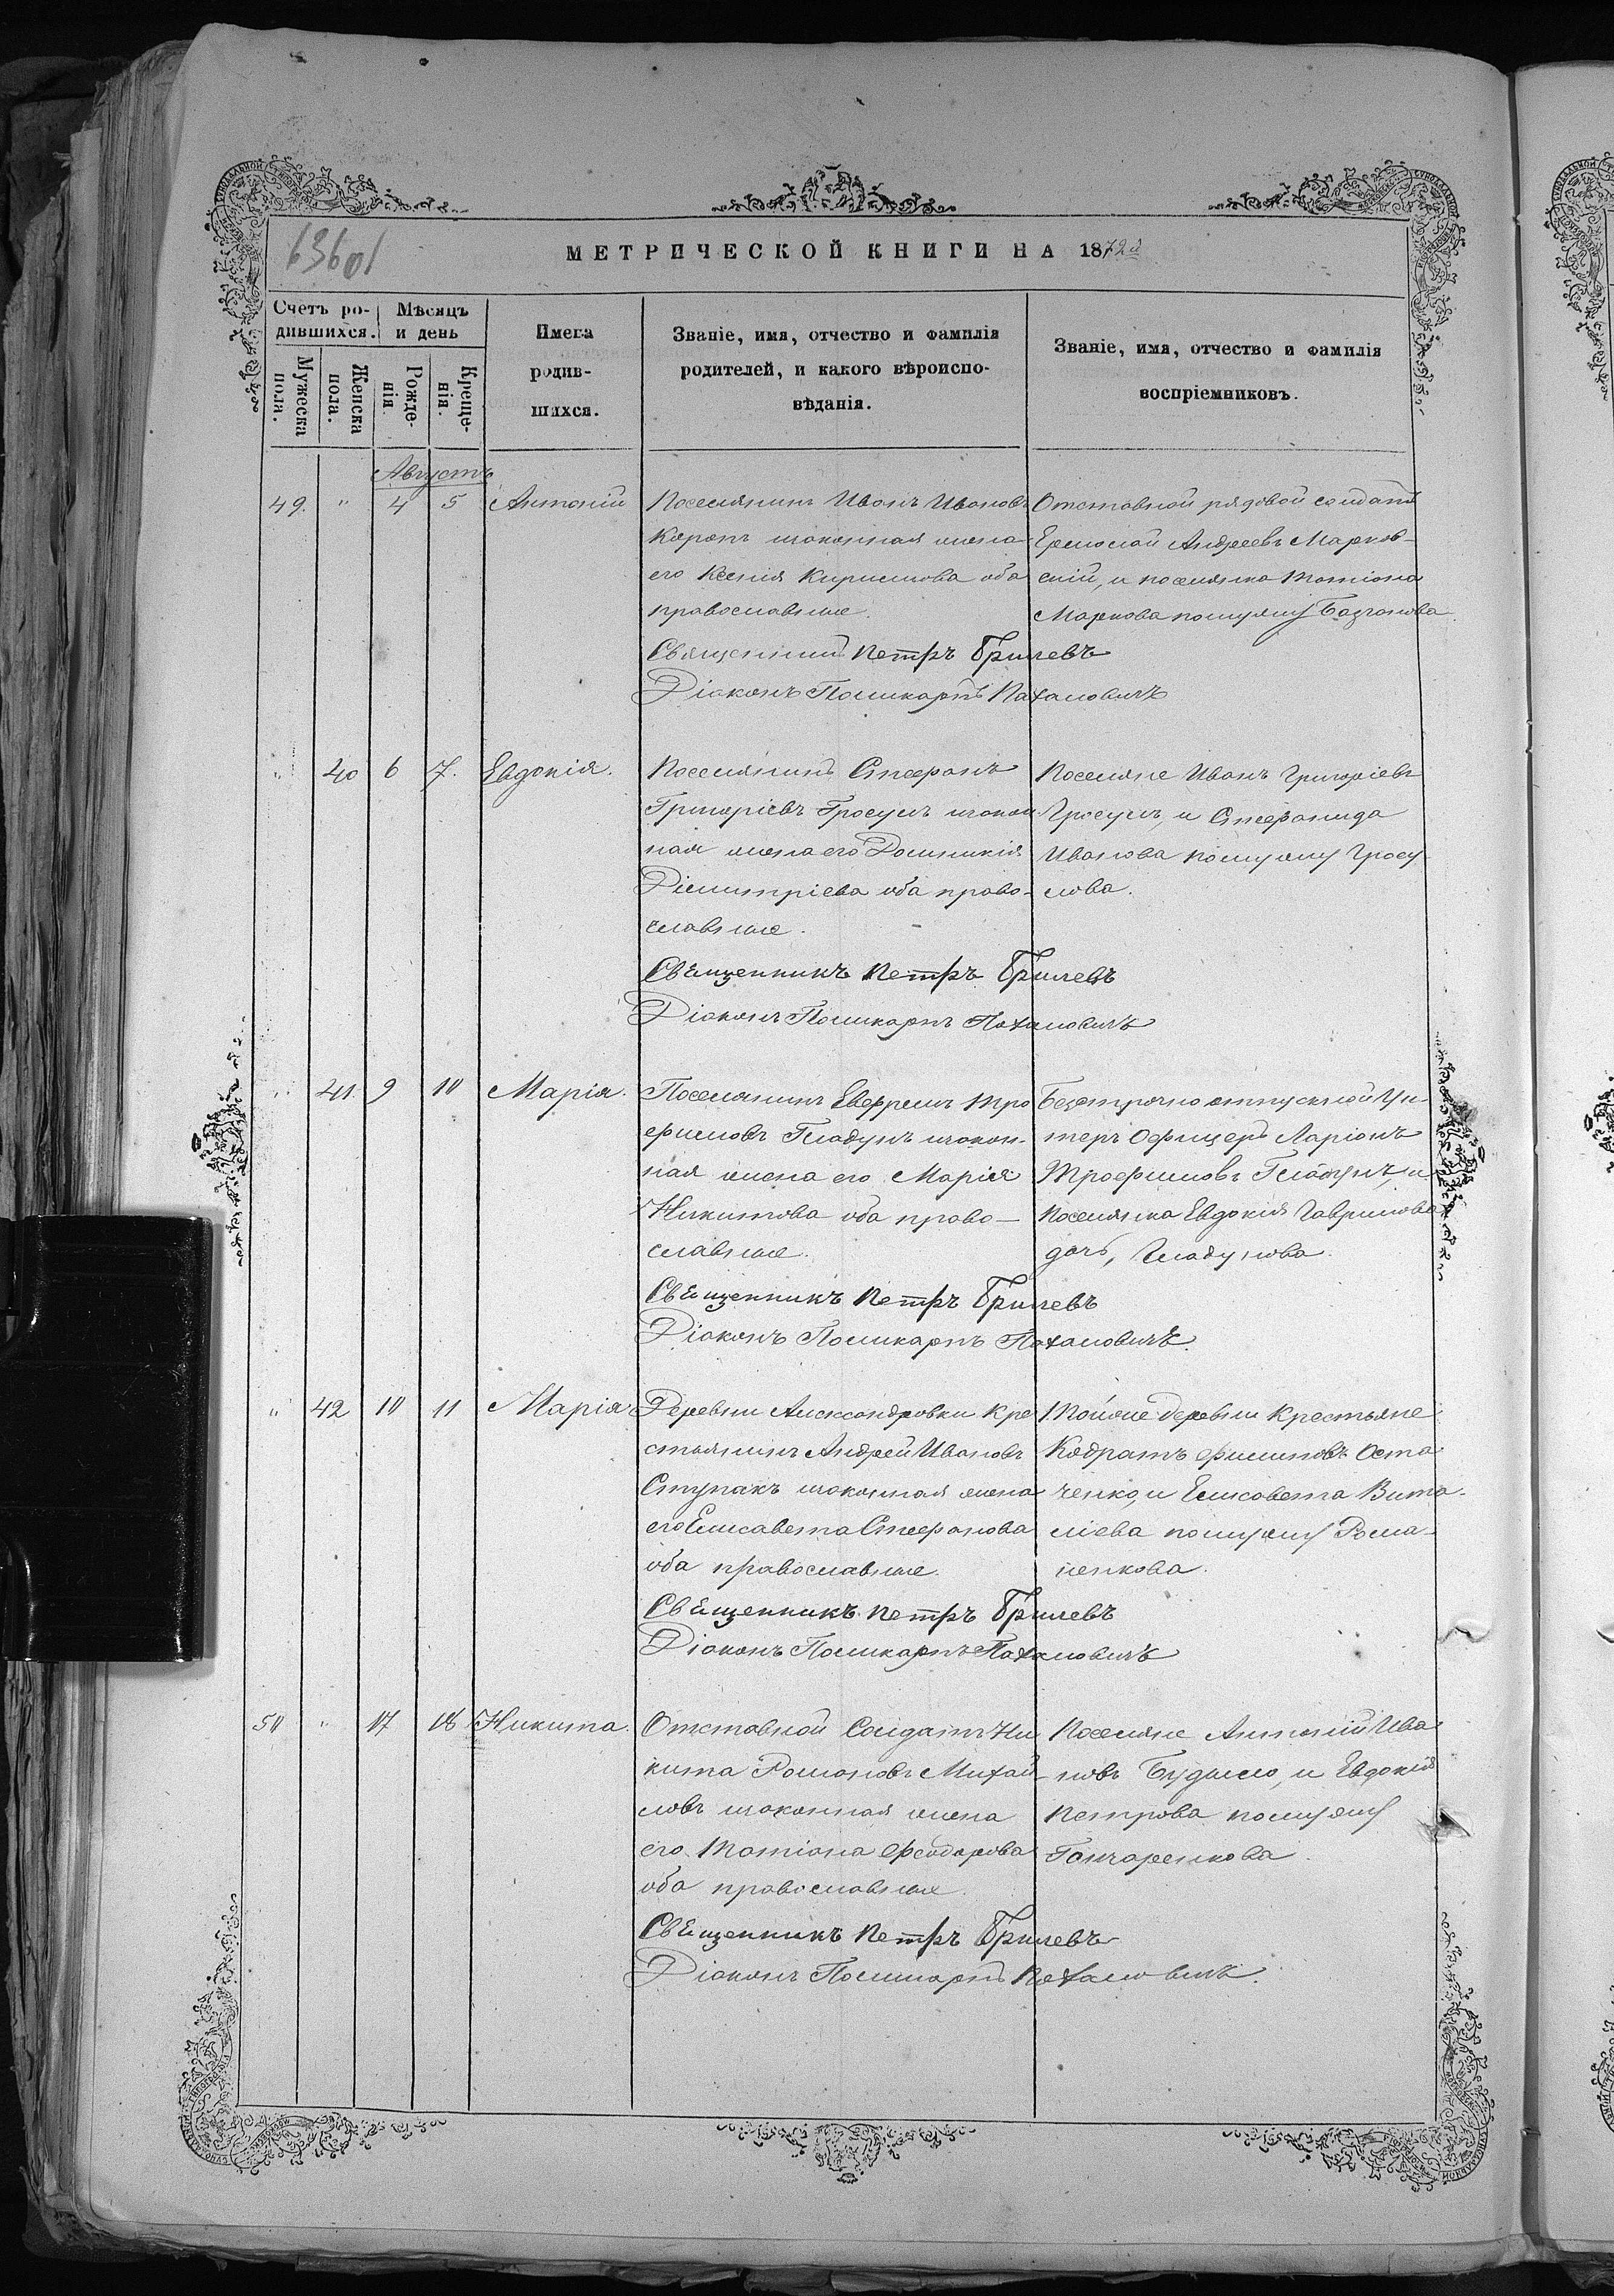 63601
МЕТРИЧЕСКОЙ КНИГИ НА 1872й
Счетъ ро-
дившихся.
Мѣсяцъ
и день
Имена
родив-
шихся.
Званіе, имя, отчество и фамилія
родителей, и какого вѣроиспо-
вѣданія.
Званіе, имя, отчество и фамилія
воспріемниковъ.
Мужеска
пола.
Женска
пола.
Рожде-
нія.
Креще-
нія.
Августъ
49. " 4 5 Антоній
Поселянинъ Иванъ Ивановъ
законная жена
его Ксенія Кирилова оба
православные.
Священникъ Петръ Брилевъ
Діаконъ Поликарпъ Пахаловичъ
Отставной рядовой солдатъ
Ермолай Андреевъ Марков-
скій, и поселянка Татіана
Маркова по мужу
" 40 6 7. Евдокія.
Поселянинъ Стефанъ
Григоріевъ Гросулъ закон-
ная жена его Домникія
Дімитріева оба право-
славные.
Священникъ Петръ Брилевъ
Діаконъ Поликарпъ Пахаловичъ
Поселяне Иванъ Григоріевъ
Гросулъ, и Стефанида
Иванова по мужу Гросу-
лова.
" 41. 9 10 Марія.
Поселянинъ Евфремъ Тро
фимовъ Гладунъ закон-
ная жена его Марія
Никитова оба право-
славные.
Священникъ Петръ Брилевъ
Діаконъ Поликарпъ Пахаловичъ.
Безсрочно отпускной Ун-
теръ Офицеръ Ларіонъ
Трофимовъ Гладунъ, и
поселянка Евдокія Гаврилова
дочь, Гладунова.
" 42 10 11 Марія
Деревни Александровки Кре
стьянинъ Андрей Ивановъ
Ступакъ законная жена
его Елисавета Стефанова
оба православные.
Священникъ Петръ Брилевъ
Діаконъ Поликарпъ Пахаловичъ
Тойже деревни Крестьяне
Кодратъ Филиповъ Оста
ченко, и Елисавета Вита-
ліева по мужу Рома-
ненкова.
50 " 17 18 Никита.
Отставной Солдатъ Ни
кита Романовъ Михай-
ловъ законная жена
его Татіана Феодорова
оба православные.
Священникъ Петръ Брилевъ
Діаконъ Поликарпъ Пахаловичъ.
Поселяне Антоній Ива
новъ и Евдокія
Петрова по мужу
Гончаренкова.